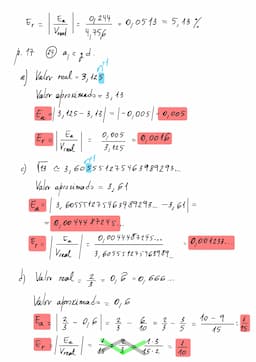 Er = | Ea / Vreal | = 0,244 / 4,756 = 0,0513 = 5,13 %
p. 17
a) Valor real = 3,125
Valor aproximado = 3,13
Ea = | 3,125 - 3,13 | = | -0,005 | = 0,005
Er = | Ea / Vreal | = 0,005 / 3,125 = 0,0016
c) √13 ≃ 3,605551275463989293...
Valor aproximado = 3,61
Ea = | 3,605551275463989293... - 3,61 | =
= 0,0044487245...
Er = | Ea / Vreal | = 0,0044487245... / 3,60555127563989... = 0,001233...
d) Valor real = 2/3 = 0,6 = 0,666...
Valor aproximado = 0,6
Ea = | 2/3 - 0,6 | = 2/3 - 6/10 = 2/3 - 3/5 = 10 - 9 / 15 = 1/15
Er = | Ea / Vreal | = 1/15 / 2/3 = 1·3 / 15·2 = 1/10